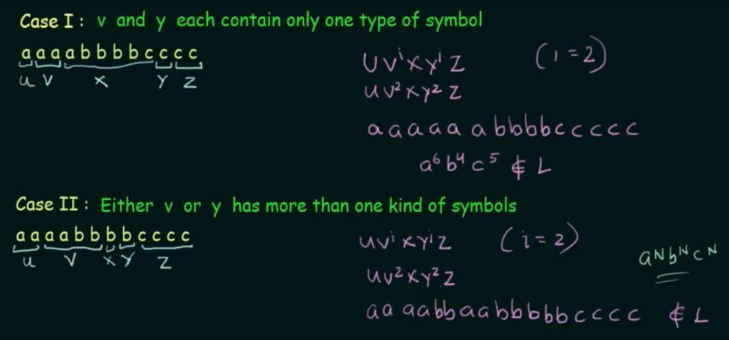 Case I : v and y each contain only one type of symbol
a a a a b b b b c c c c
u v x y z
u vⁱ x yⁱ z (i = 2)
u v² x y² z
a a a a a a b b b b c c c c c
a⁶ b⁴ c⁵ ∉ L
Case II : Either v or y has more than one kind of symbols
a a a a b b b b c c c c
u v x y z
u vⁱ x yⁱ z (i = 2)
aᴺ bᴺ cᴺ
u v² x y² z
a a a a b b a a b b b b b c c c c ∉ L